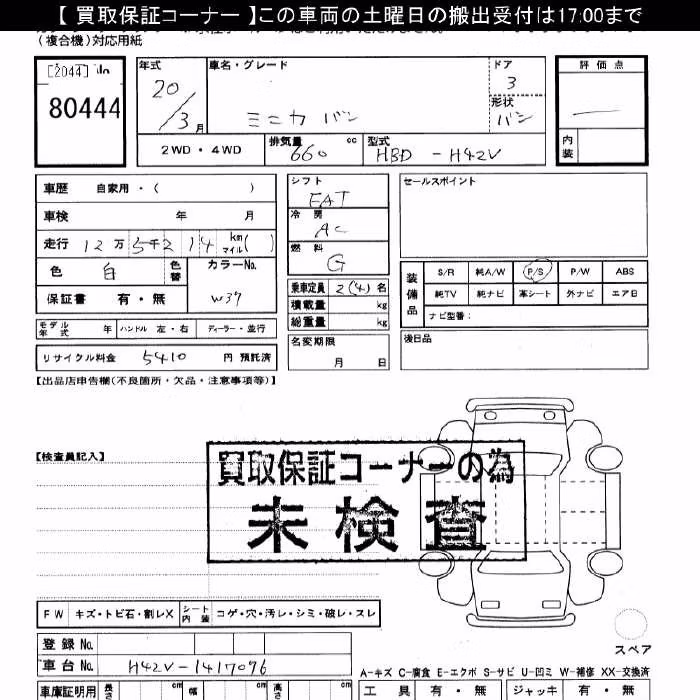 【 買取保証コーナー 】この車両の土曜日の搬出受付は17:00まで
(複合機)対応用紙
[2044] No
80444
年式 車名・グレード ドア 評価点
20/3月 ミニカ バン 3 —
形状 バン
2WD・4WD 排気量 660 cc 型式 HBD - H42V 内装
車歴 自家用・( )
車検 年 月
走行 12万5千214 km マイル( )
色 白 色替 カラーNo. W37
保証書 有・無
モデル年式 年 ハンドル 左・右 ディーラー・並行
リサイクル料金 5410 円 預託済
シフト FAT
冷房 AC
燃料 G
乗車定員 2(4)名
積載量 kg
総重量 kg
名変期限 月 日
セールスポイント
装備品 S/R 純A/W P/S P/W ABS
純TV 純ナビ 革シート 外ナビ エアB
ナビ型番:
後日品
【出品店申告欄(不良箇所・欠品・注意事項等)】
【検査員記入】
買取保証コーナーの為
未検査
FW キズ・トビ石・割レX シート内装 コゲ・穴・汚レ・シミ・破レ・スレ
スペア
登録No.
車台No. H42V-1417096
A-キズ C-腐食 E-エクボ S-サビ U-凹ミ W-補修 XX-交換済
車庫証明用 長さ cm 幅 cm 高さ cm 工具 有・無 ジャッキ 有・無